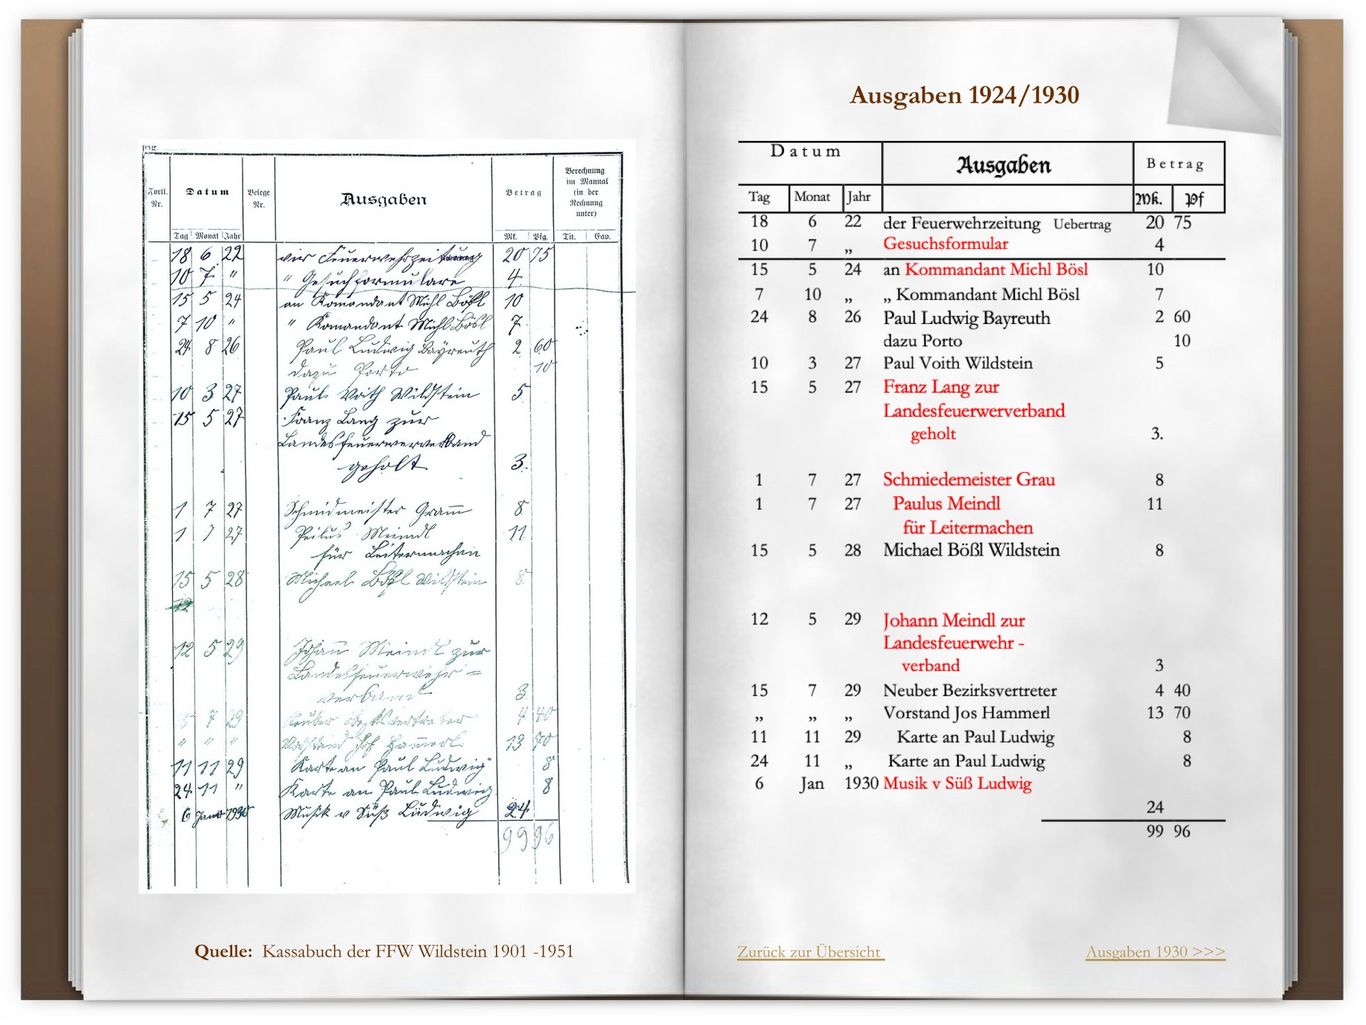 Fortl.
Nr.
Datum
Belege
Nr.
Ausgaben
Betrag
Berechnung
im Manual
(in der
Rechnung
unter)
Tag Monat Jahr
Mk. Pfg.
Tit. Gav.
18 6 22 Feuerwehrzeitung 20 75
10 7 " " Gesuchformulare 4
15 5 24 an Komandant Michl Bößl 10
7 10 " " Komandant Michl Bösl 7
24 8 26 Paul Ludwig Bayreuth 2 60
dazu Porto 10
10 3 27 Paul Voith Wildstein 5
15 5 27 Franz Lang zur
Landesfeuerwerverband
geholt 3.
1 7 27 Schmidmeister 8
1 7 27 Meindl 11
für Leitermachen
15 5 28 Michael Bößl Wildstein 8
12
12 5 29 Johann Meindl zur
Landesfeuerwehr =
verband 3
7 29 4 40
" " " Vorstand Jos Hammerl 13 70
11 11 29 Karte an Paul Ludwig 8
24 11 " Karte an Paul Ludwig 8
6 Jan 1930 Musik v Süß Ludwig 24
99 96
Quelle: Kassabuch der FFW Wildstein 1901 -1951
Ausgaben 1924/1930
Datum
Ausgaben
Betrag
Tag Monat Jahr Mk. Pf
18 6 22 der Feuerwehrzeitung Uebertrag 20 75
10 7 „ Gesuchsformular 4
15 5 24 an Kommandant Michl Bösl 10
7 10 „ „ Kommandant Michl Bösl 7
24 8 26 Paul Ludwig Bayreuth 2 60
dazu Porto 10
10 3 27 Paul Voith Wildstein 5
15 5 27 Franz Lang zur
Landesfeuerwerverband
geholt 3.
1 7 27 Schmiedemeister Grau 8
1 7 27 Paulus Meindl 11
für Leitermachen
15 5 28 Michael Bößl Wildstein 8
12 5 29 Johann Meindl zur
Landesfeuerwehr -
verband 3
15 7 29 Neuber Bezirksvertreter 4 40
„ „ „ Vorstand Jos Hammerl 13 70
11 11 29 Karte an Paul Ludwig 8
24 11 „ Karte an Paul Ludwig 8
6 Jan 1930 Musik v Süß Ludwig
24
99 96
Zurück zur Übersicht
Ausgaben 1930 >>>